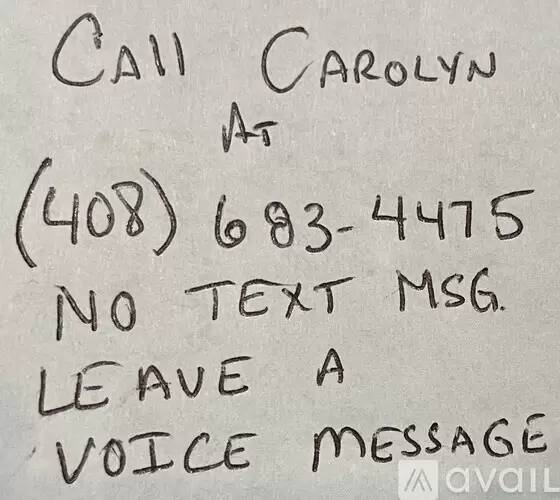 Call CAROLYN
AT
(408) 683-4475
NO TEXT MSG.
LEAVE A
VOICE MESSAGE
avail